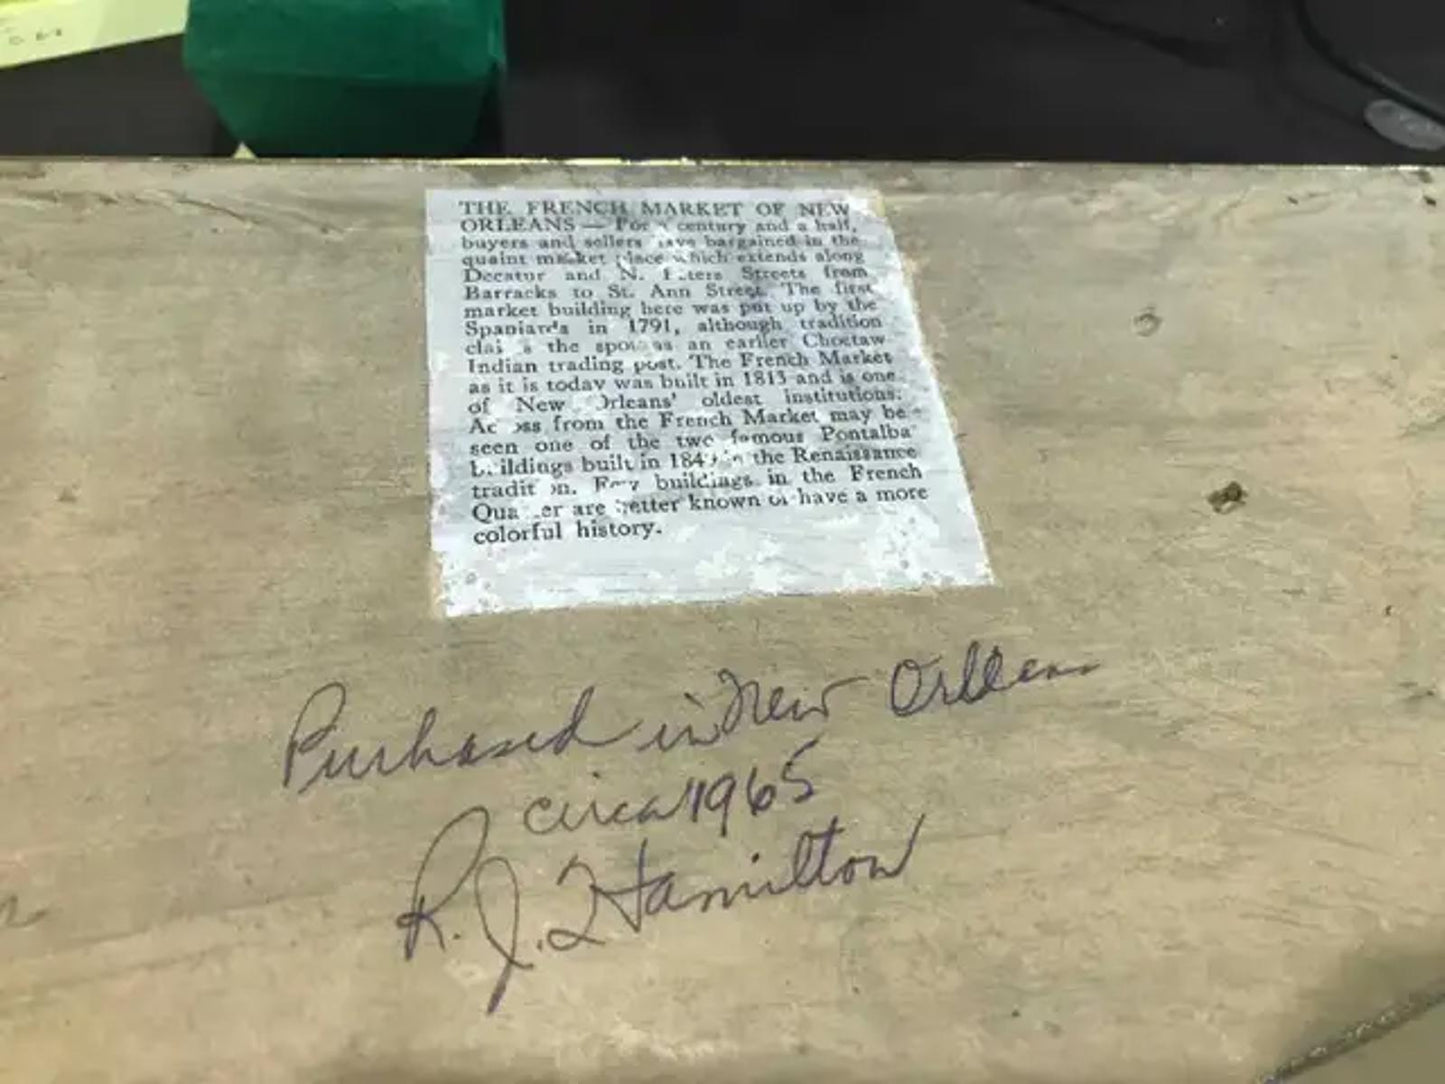 THE FRENCH MARKET OF NEW
ORLEANS — For century and a half,
buyers and sellers have bargained in the
quaint market place which extends along
Decatur and N. Peters Streets from
Barracks to St. Ann Street. The first
market building here was put up by the
Spaniards in 1791, although tradition
claims the spot as an earlier Choctaw
Indian trading post. The French Market
as it is today was built in 1813 and is one
of New Orleans' oldest institutions.
Across from the French Market may be
seen one of the two famous Pontalba
buildings built in the Renaissance
tradition. Few buildings in the French
Quarter are better known or have a more
colorful history.
Purhased in New Orleans
circa 1965
R. J. Hamilton